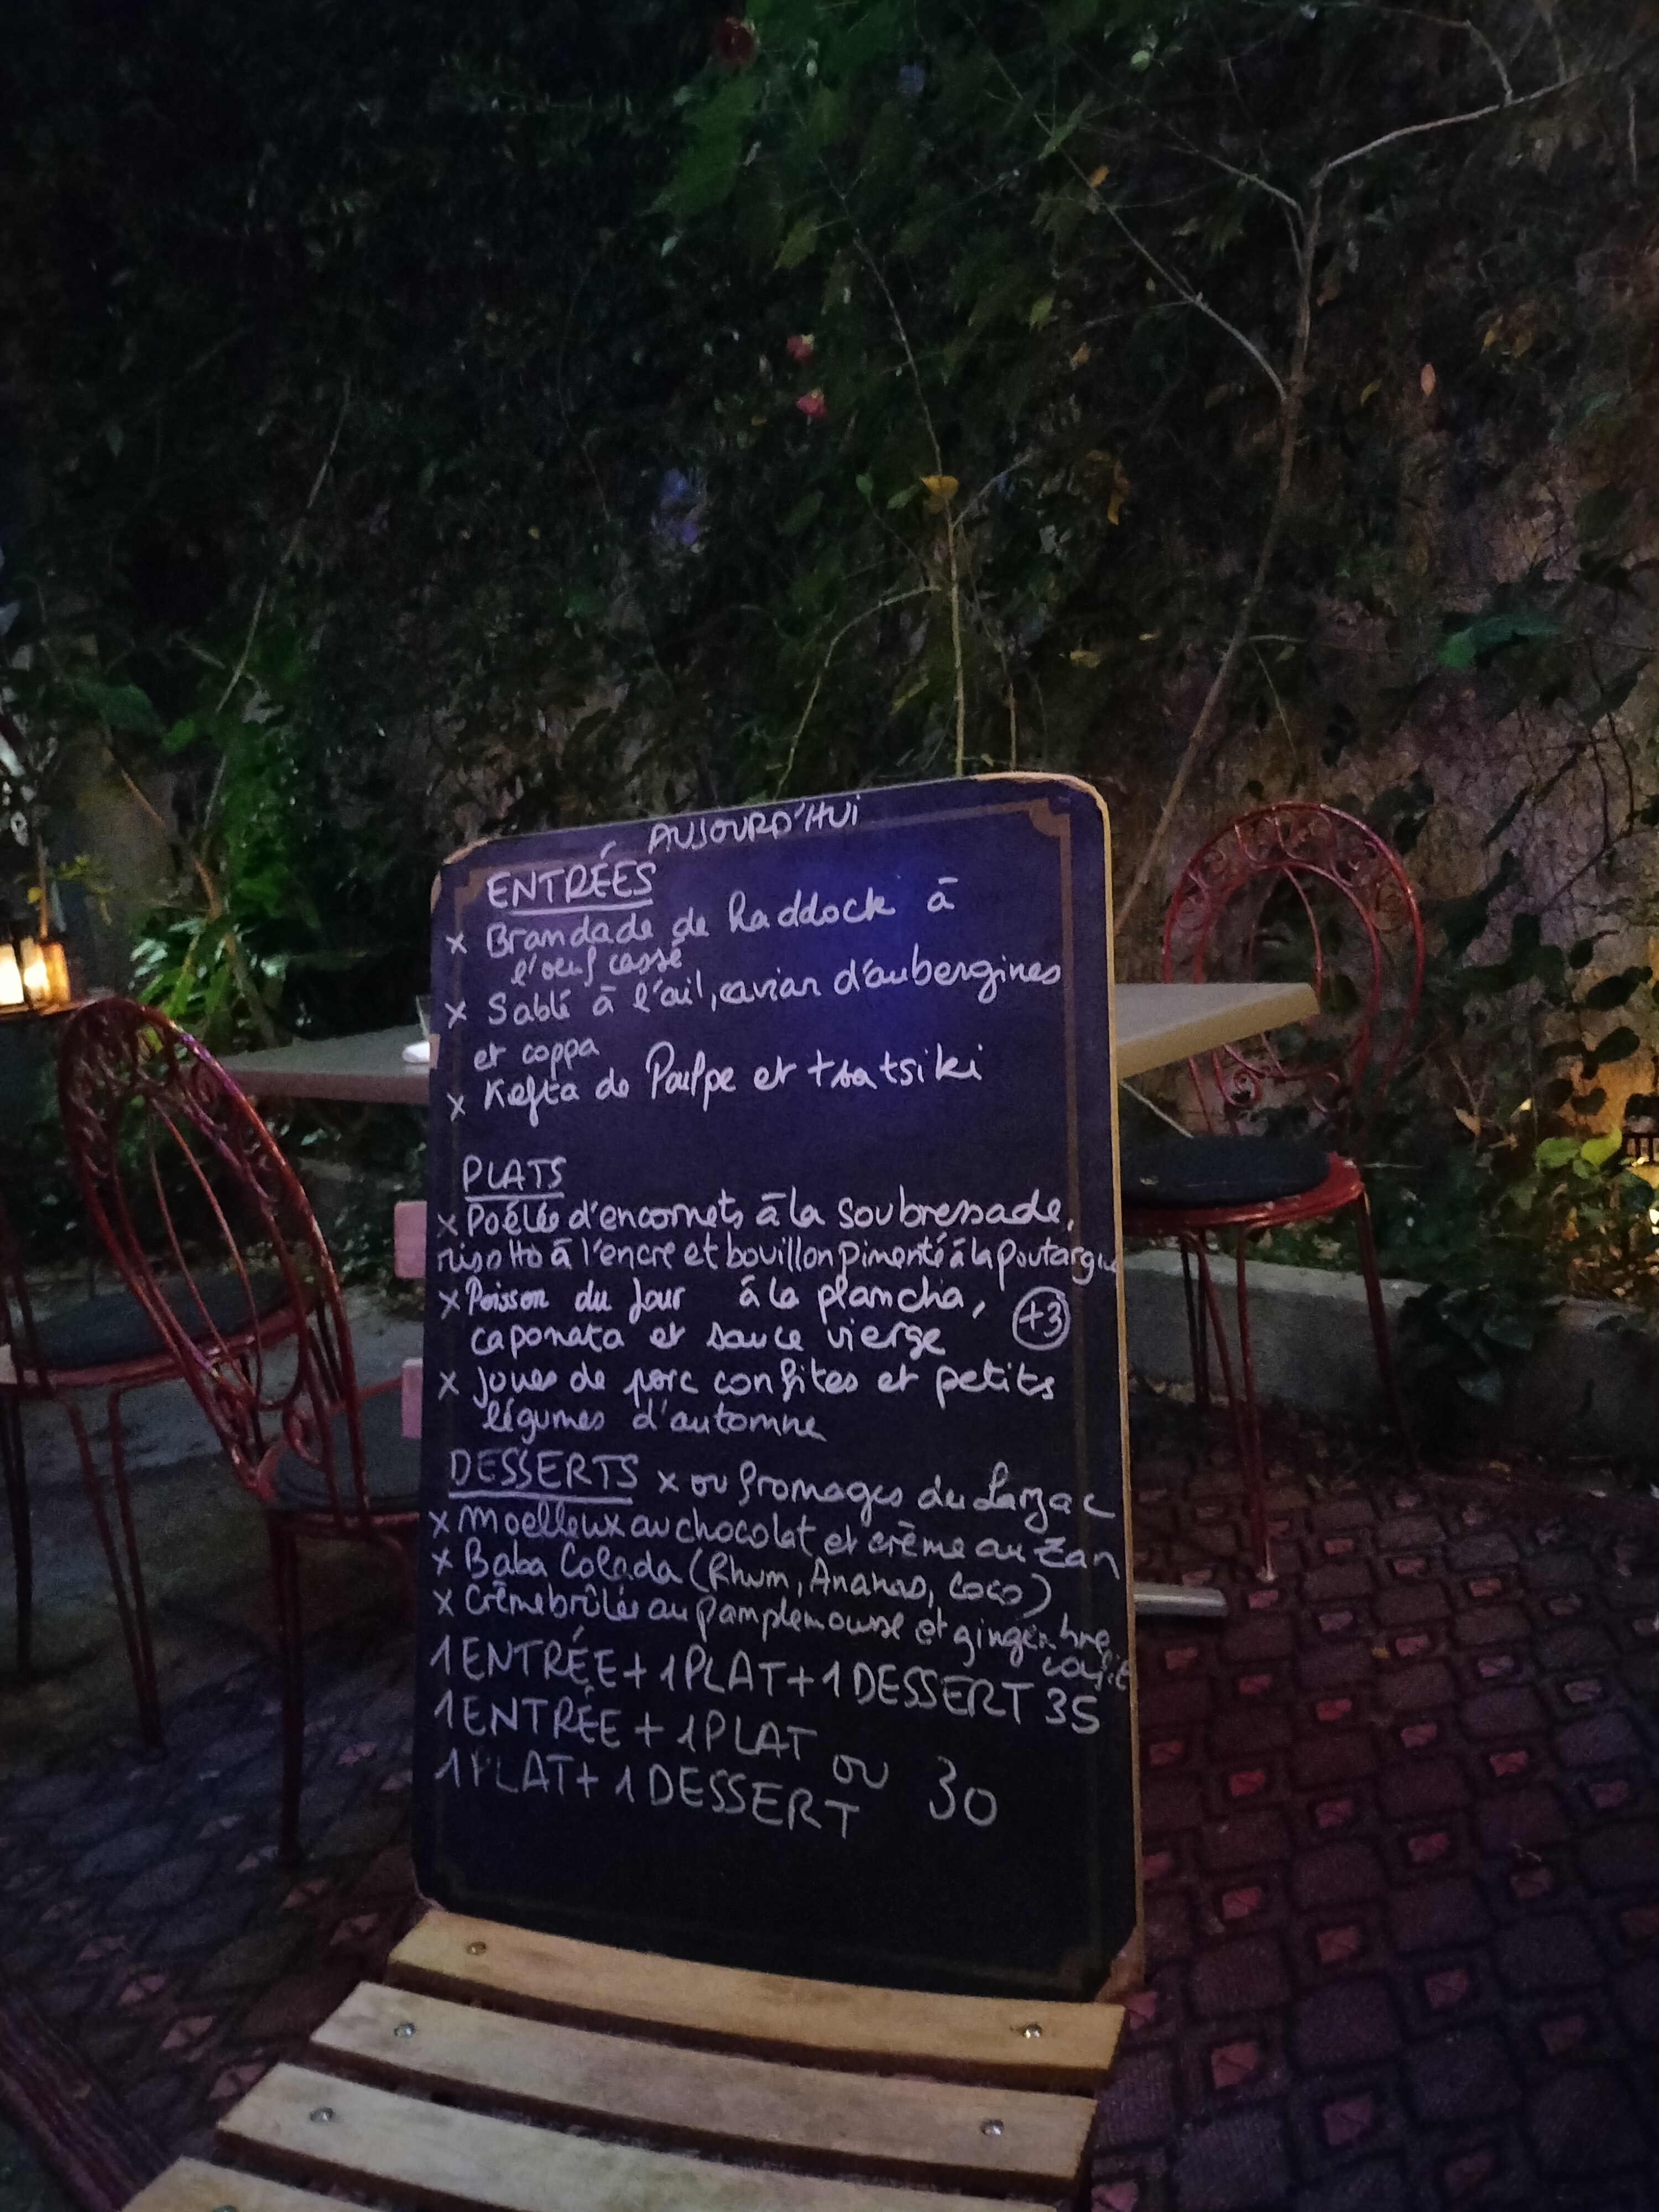 AUJOURD'HUI
ENTRÉES
x Brandade de haddock à
l'oeuf cassé
x Sablé à l'ail, caviar d'aubergines
et coppa
x Kefta de Poulpe et tsatsiki
PLATS
x Poélée d'encornets à la soubressade,
risotto à l'encre et bouillon pimenté à la poutargue
x Poisson du Jour à la plancha,
caponata et sauce vierge +3
x Joues de porc confites et petits
légumes d'automne
DESSERTS x ou fromages du Larzac
x Moelleux au chocolat et crème au Zan
x Baba Colada (Rhum, Ananas, Coco)
x Crème brûlée au pamplemousse et gingembre
confit
1 ENTRÉE + 1 PLAT + 1 DESSERT 35
1 ENTRÉE + 1 PLAT
ou 30
1 PLAT + 1 DESSERT